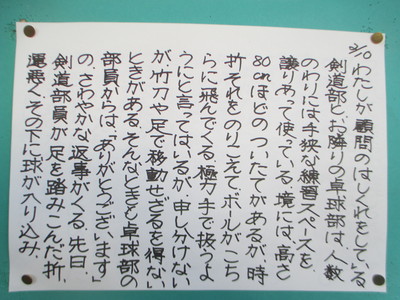 3/10 わたしが顧問のはしくれをしている
剣道部と、お隣りの卓球部は、人数
のわりには手狭な練習スペースを
譲りあって使っている。境には、高さ
80cmほどのついたてがあるが、時
折それをのりこえて、ボールがこち
らに飛んでくる。極力手で扱うよ
うにと言ってはいるが、申し分けない
が、竹刀や足で移動せざるを得ない
ときがある。そんなときも卓球部の
部員からは、「ありがとうございます」
の、さわやかな返事がくる。先日、
剣道部員が足を踏みこんだ折、
運悪く、その下に球が入り込み、